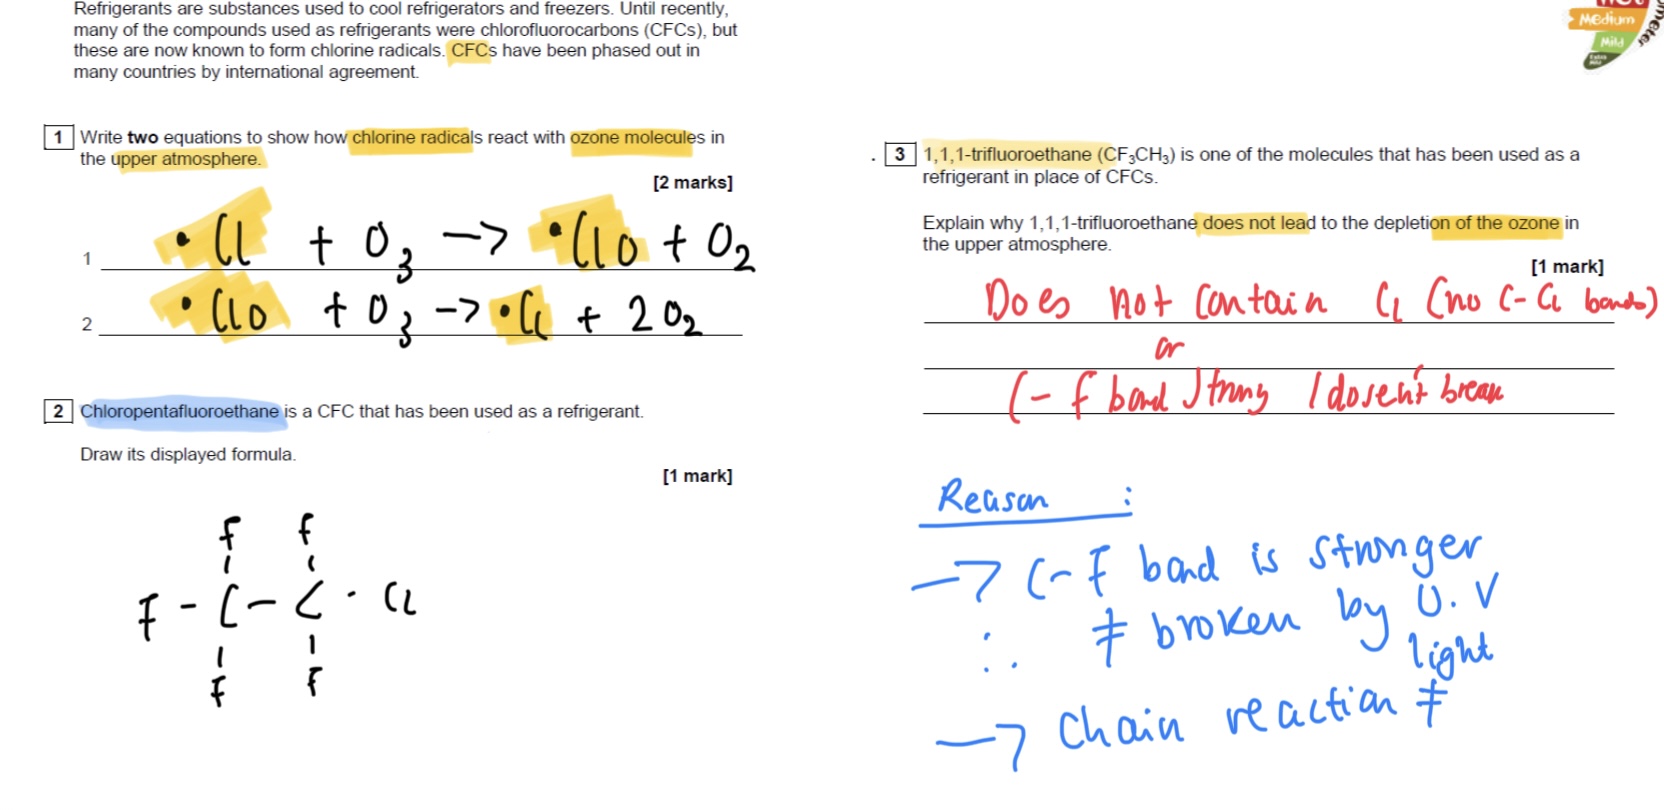 Refrigerants are substances used to cool refrigerators and freezers. Until recently,
many of the compounds used as refrigerants were chlorofluorocarbons (CFCs), but
these are now known to form chlorine radicals. CFCs have been phased out in
many countries by international agreement.
1 Write two equations to show how chlorine radicals react with ozone molecules in
the upper atmosphere.
[2 marks]
1 •Cl + O3 -> •ClO + O2
2 •ClO + O3 -> •Cl + 2O2
2 Chloropentafluoroethane is a CFC that has been used as a refrigerant.
Draw its displayed formula.
[1 mark]
F F
F - C - C - Cl
F F
Medium
Mild
Extra Mild
. 3 1,1,1-trifluoroethane (CF3CH3) is one of the molecules that has been used as a
refrigerant in place of CFCs.
Explain why 1,1,1-trifluoroethane does not lead to the depletion of the ozone in
the upper atmosphere.
[1 mark]
Does not contain Cl (no C-Cl bonds)
or
C-F bond strong / dosen't break
Reason :
-> C-F bond is stronger
∴ ≠ broken by U.V
light
-> Chain reaction ≠